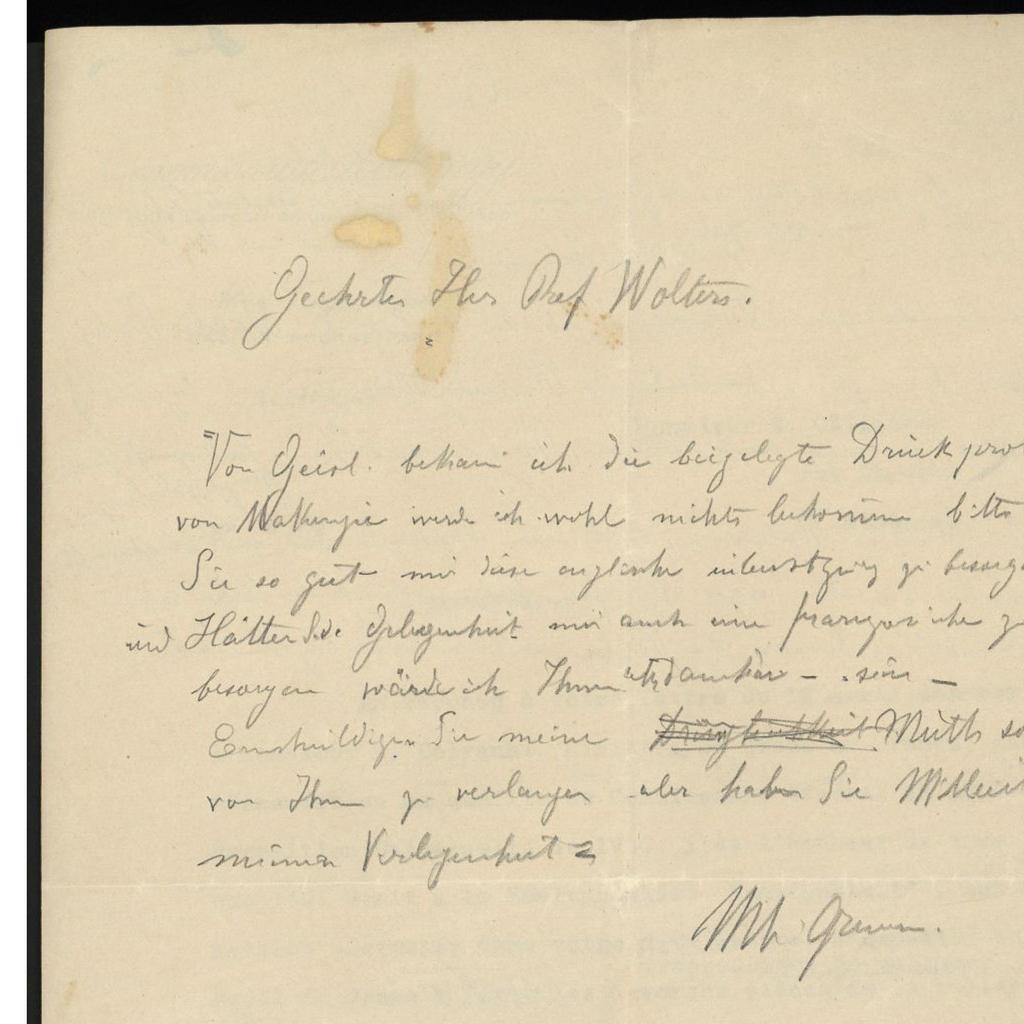 Geehrter Herr Prof Wolters.
Von Geirl. bekam ich die beigelegte Druckpro
von werde ich wohl nichts bekommen bitte
Sie so gut mir diese englische zu besorge
und Hätten Sie Gelegenheit mir auch eine französiche zu
besorgen würde ich Ihnen dankbar – sein –
Entschuldigen Sie meine Muth so
von Ihnen zu verlangen aber haben Sie Mitlei
meiner Verlegenheit